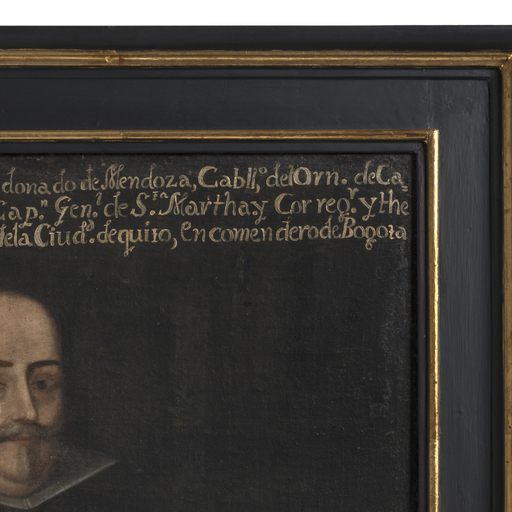 donado de Mendoza, Cabllº. del Orn. de Ca-
Capⁿ. Genˡ. de Sᵗᵃ. Martha y Corregʳ. y the
dela Ciudᵈ. de quito, Encomendero de Bogota